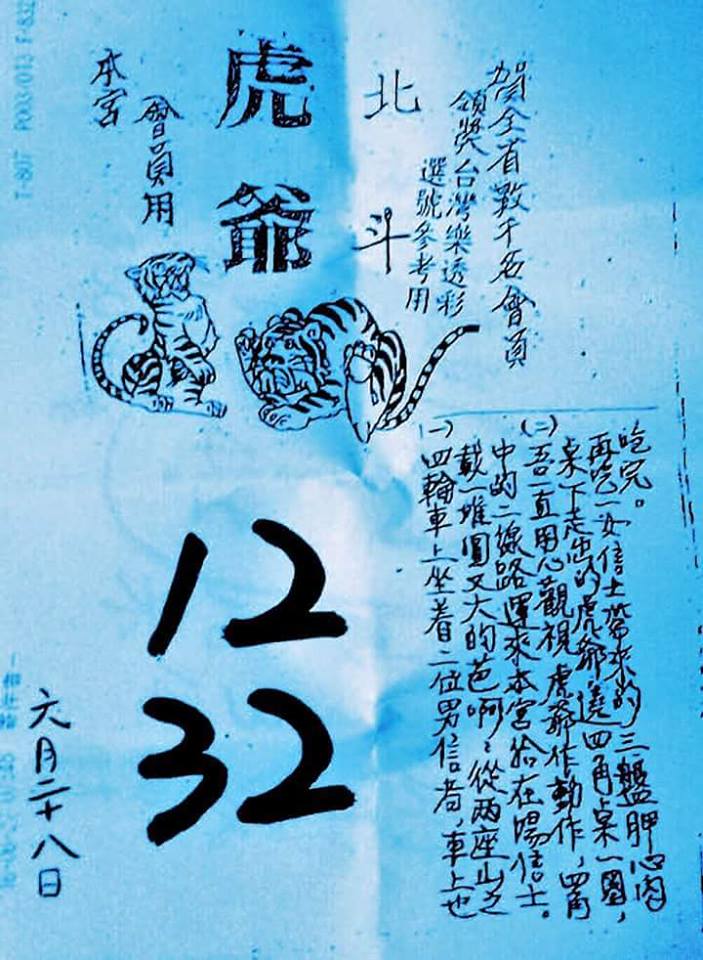 賀全省數千名會員
領獎台灣樂透彩
選號參考用
北斗
虎爺
本宮
會員用
(一)
四輪車上坐着二位男信者,車上也
載一堆圓又大的芭啊,從兩座山之
中的二線路運來本宮給在場信士。
(二)
吾一直用心觀視虎爺作動作,四角
桌下走出的虎爺遶四角桌一圈,
再吃一女信士帶來的三盤胛心肉
吃完。
12
32
六月二十八日
T-807 P003/013 F-832